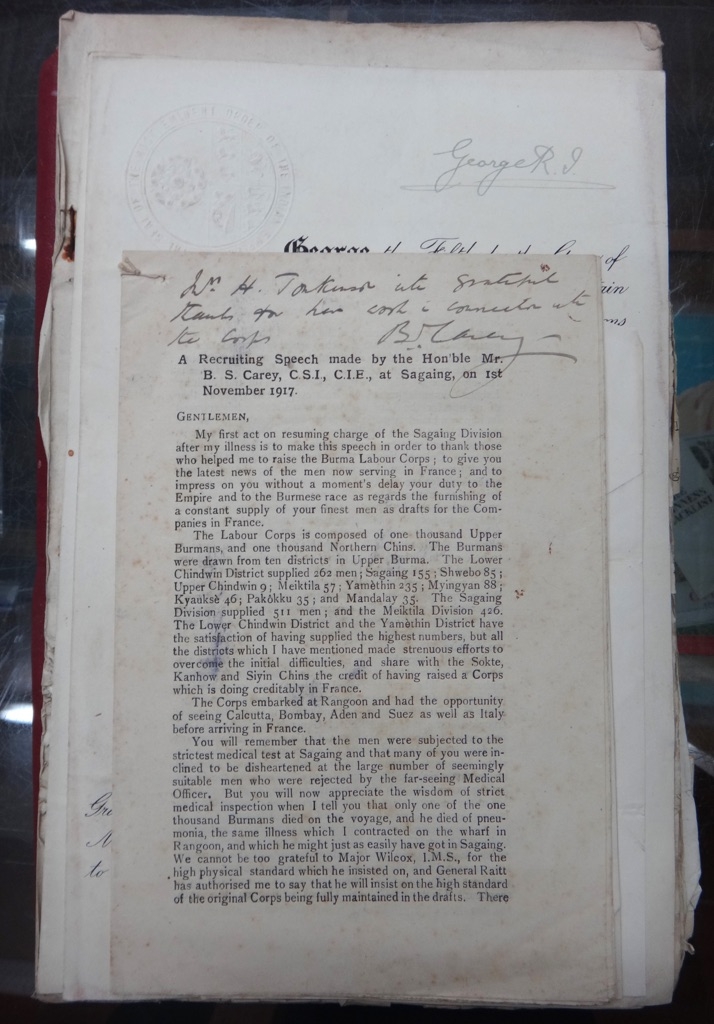 George R. I.
George the Fifth by the Grace of
ain
ms
Mr. H. Tonkinson with grateful
thanks for his work in connection with
the Corps B. S. Carey
A Recruiting Speech made by the Hon'ble Mr.
B. S. Carey, C.S.I., C.I.E., at Sagaing, on 1st
November 1917.
GENTLEMEN,
My first act on resuming charge of the Sagaing Division
after my illness is to make this speech in order to thank those
who helped me to raise the Burma Labour Corps; to give you
the latest news of the men now serving in France; and to
impress on you without a moment's delay your duty to the
Empire and to the Burmese race as regards the furnishing of
a constant supply of your finest men as drafts for the Com-
panies in France.
The Labour Corps is composed of one thousand Upper
Burmans, and one thousand Northern Chins. The Burmans
were drawn from ten districts in Upper Burma. The Lower
Chindwin District supplied 262 men; Sagaing 155; Shwebo 85;
Upper Chindwin 9; Meiktila 57; Yamèthin 235; Myingyan 88;
Kyauksè 46; Pakôkku 35; and Mandalay 35. The Sagaing
Division supplied 511 men; and the Meiktila Division 426.
The Lower Chindwin District and the Yamèthin District have
the satisfaction of having supplied the highest numbers, but all
the districts which I have mentioned made strenuous efforts to
overcome the initial difficulties, and share with the Sokte,
Kanhow and Siyin Chins the credit of having raised a Corps
which is doing creditably in France.
The Corps embarked at Rangoon and had the opportunity
of seeing Calcutta, Bombay, Aden and Suez as well as Italy
before arriving in France.
You will remember that the men were subjected to the
strictest medical test at Sagaing and that many of you were in-
clined to be disheartened at the large number of seemingly
suitable men who were rejected by the far-seeing Medical
Officer. But you will now appreciate the wisdom of strict
medical inspection when I tell you that only one of the one
thousand Burmans died on the voyage, and he died of pneu-
monia, the same illness which I contracted on the wharf in
Rangoon, and which he might just as easily have got in Sagaing.
We cannot be too grateful to Major Wilcox, I.M.S., for the
high physical standard which he insisted on, and General Raitt
has authorised me to say that he will insist on the high standard
of the original Corps being fully maintained in the drafts. There
Gre
to